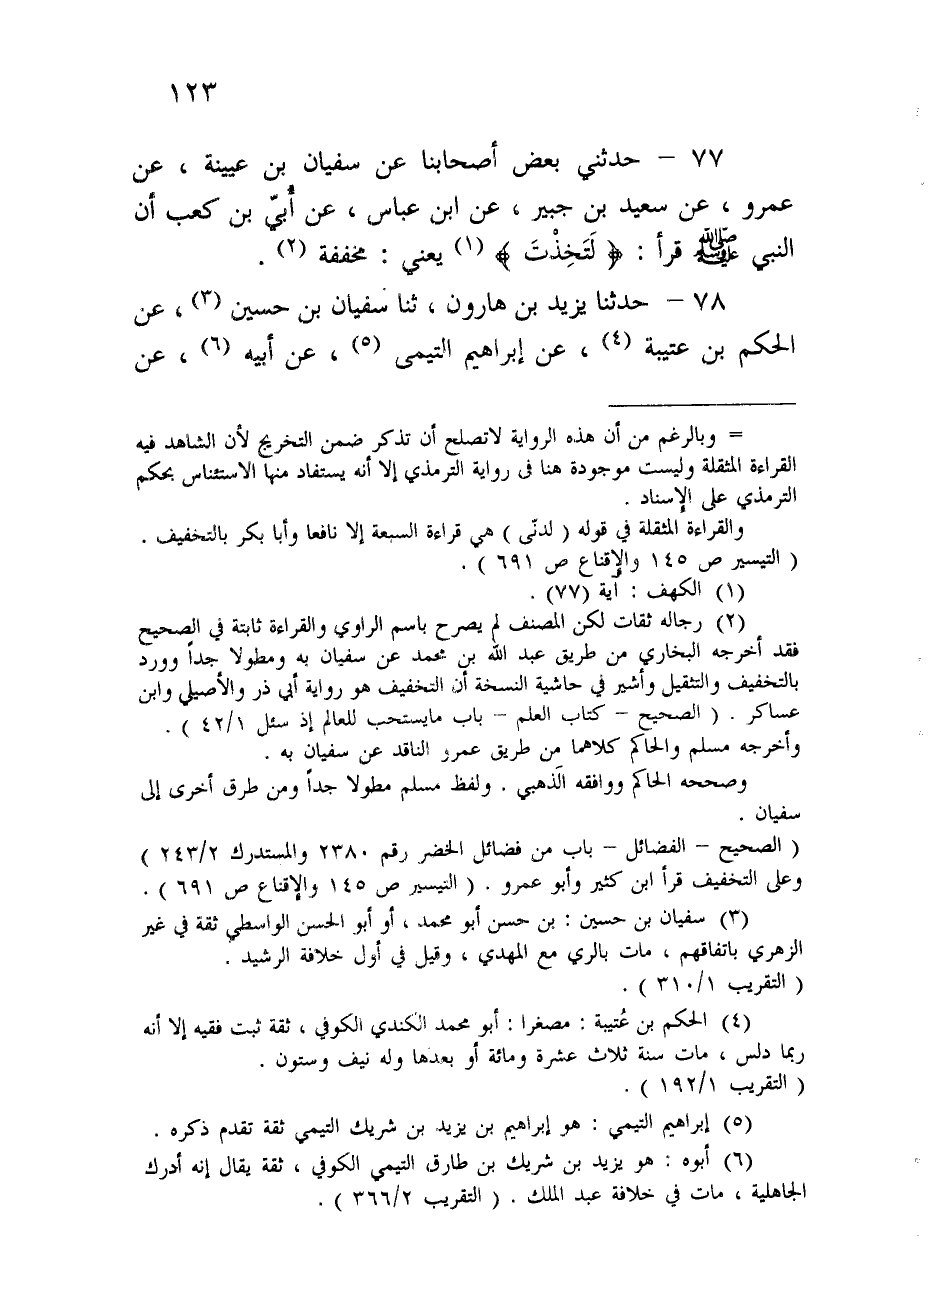 ١٢٣
٧٧ – حدثني بعض أصحابنا عن سفيان بن عيينة ، عن
عمرو ، عن سعيد بن جبير ، عن ابن عباس ، عن أُبيّ بن كعب أن
النبي ﷺ قرأ : ﴿ لَتَخِذْتَ ﴾ (١) يعني : مخففة (٢) .
٧٨ – حدثنا يزيد بن هارون ، ثنا سفيان بن حسين (٣) ، عن
الحكم بن عتيبة (٤) ، عن إبراهيم التيمى (٥) ، عن أبيه (٦) ، عن
= وبالرغم من أن هذه الرواية لاتصلح أن تذكر ضمن التخريج لأن الشاهد فيه
القراءة المثقلة وليست موجودة هنا فى رواية الترمذي إلا أنه يستفاد منها الاستئناس بحكم
الترمذي على الإسناد .
والقراءة المثقلة في قوله ( لدنّى ) هي قراءة السبعة إلا نافعا وأبا بكر بالتخفيف .
( التيسير ص ١٤٥ والإقناع ص ٦٩١ ) .
(١) الكهف : آية (٧٧) .
(٢) رجاله ثقات لكن المصنف لم يصرح باسم الراوي والقراءة ثابتة في الصحيح
فقد أخرجه البخاري من طريق عبد الله بن محمد عن سفيان به ومطولا جداً وورد
بالتخفيف والتثقيل وأشير في حاشية النسخة أن التخفيف هو رواية أبي ذر والأصيلي وابن
عساكر . ( الصحيح – كتاب العلم – باب مايستحب للعالم إذ سئل ٤٢/١ ) .
وأخرجه مسلم والحاكم كلاهما من طريق عمرو الناقد عن سفيان به .
وصححه الحاكم ووافقه الذهبي . ولفظ مسلم مطولا جداً ومن طرق أخرى إلى
سفيان .
( الصحيح – الفضائل – باب من فضائل الخضر رقم ٢٣٨٠ والمستدرك ٢٤٣/٢ )
وعلى التخفيف قرأ ابن كثير وأبو عمرو . ( التيسير ص ١٤٥ والإقناع ص ٦٩١ ) .
(٣) سفيان بن حسين : بن حسن أبو محمد ، أو أبو الحسن الواسطي ثقة في غير
الزهري باتفاقهم ، مات بالري مع المهدي ، وقيل في أول خلافة الرشيد .
( التقريب ٣١٠/١ ) .
(٤) الحكم بن عُتيبة : مصغرا : أبو محمد الكندي الكوفي ، ثقة ثبت فقيه إلا أنه
ربما دلس ، مات سنة ثلاث عشرة ومائة أو بعدها وله نيف وستون .
( التقريب ١٩٢/١ ) .
(٥) إبراهيم التيمي : هو إبراهيم بن يزيد بن شريك التيمي ثقة تقدم ذكره .
(٦) أبوه : هو يزيد بن شريك بن طارق التيمي الكوفي ، ثقة يقال إنه أدرك
الجاهلية ، مات في خلافة عبد الملك . ( التقريب ٣٦٦/٢ ) .